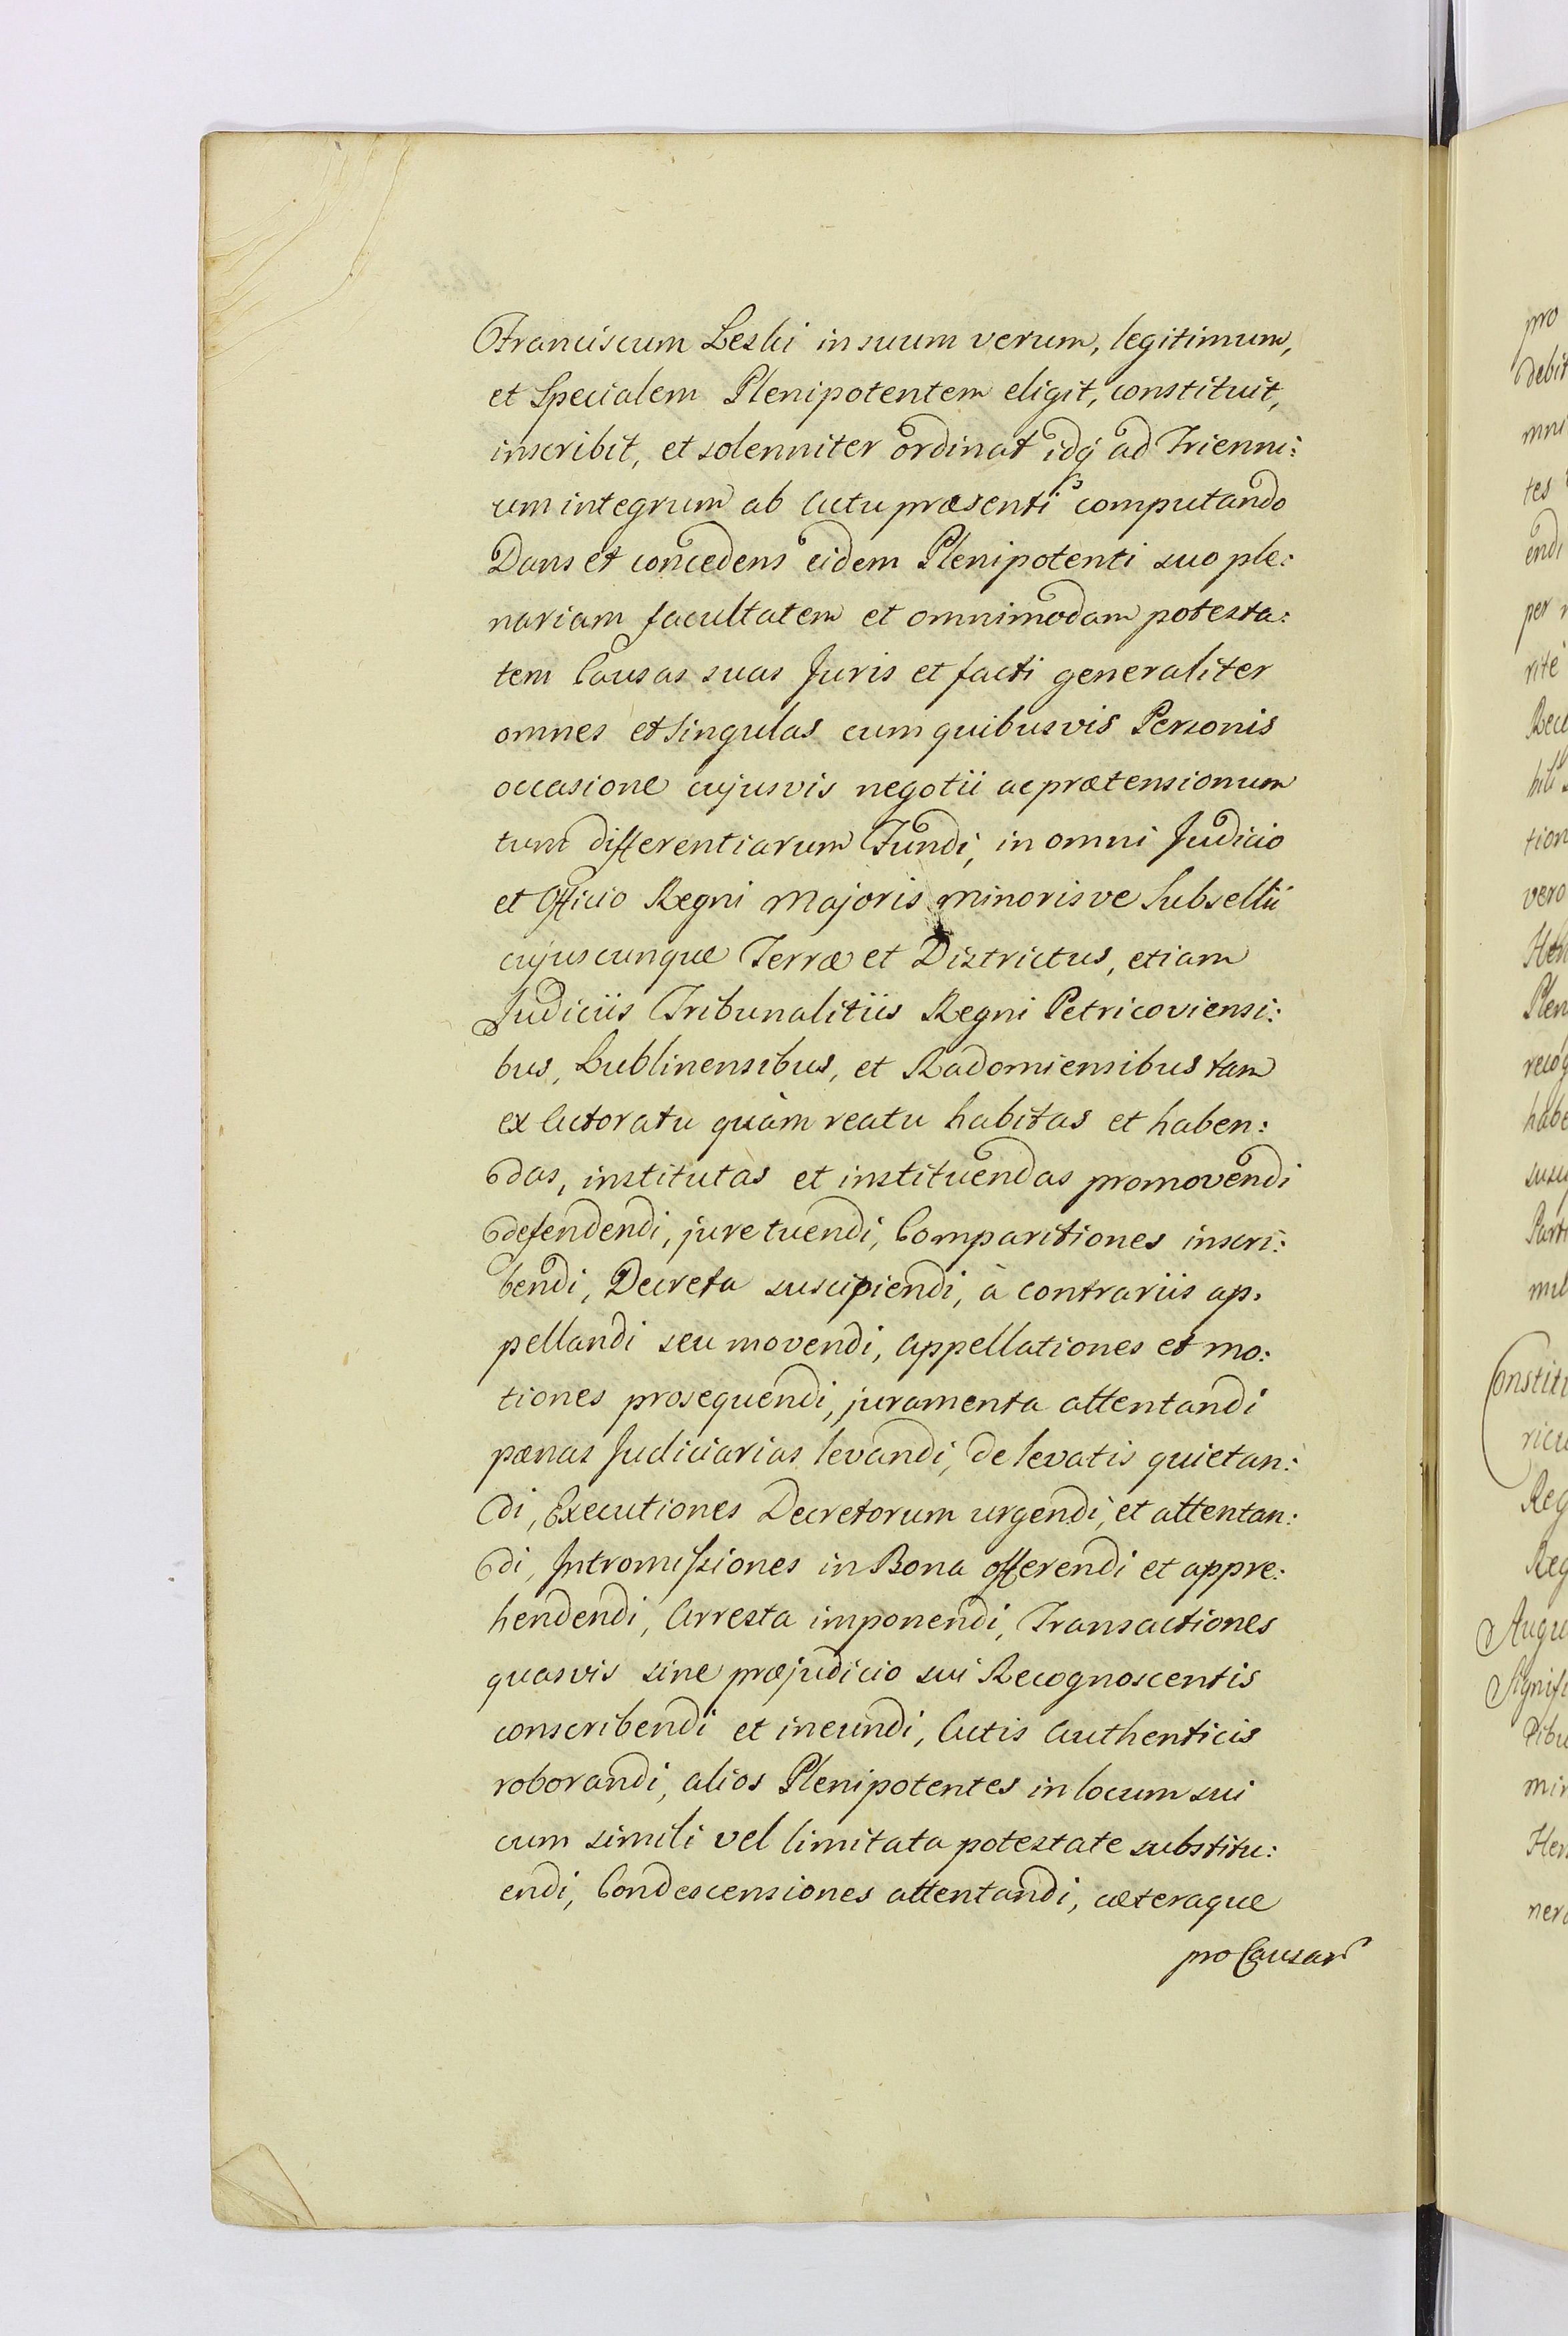 Franciscum Leski in suum verum, legitimum,
et Specialem Plenipotentem eligit, constituit,
inscribit, et solenniter ordinat idq; ad Trienni:
um integrum ab Actu præsenti computando
Dans et concedens eidem Plenipotenti suo ple:
nariam facultatem et omnimodam potesta:
tem Causas suas Juris et facti generaliter
omnes et Singulas cum quibusvis Personis
occasione cujusvis negotii ac prætensionum
tum differentiarum Fundi, in omni Judicio
et Officio Regni Majoris minorisve Subsellii
cujuscunque Terræ et Districtus, etiam
Judiciis Tribunalitiis Regni Petricoviensi:
bus, Lublinensibus, et Radomiensibus tam
ex Actoratu quàm reatu habitas et haben:
das, institutas et instituendas promovendi
defendendi, jure tuendi, Comparitiones inscri:
bendi, Decreta suscipiendi, à contrariis ap:
pellandi seu movendi, Appellationes et mo:
tiones prosequendi, juramenta attentandi
pænas Judiciarias levandi, de levatis quietan:
di, Executiones Decretorum urgendi, et attentan:
di, Intromissiones in Bona offerendi et appre:
hendendi, Arresta imponendi, Transactiones
quasvis sine præjudicio sui Recognoscentis
conscribendi et ineundi, Actis Authenticis
roborandi, alios Plenipotentes in locum sui
cum simili vel limitata potestate substitu:
endi, Condescensiones attentandi, cæteraque
pro Causar
pro
debit
mni
tes
endi
per
rite
tion
vero
Plen
recog
habe
Constitu
Reg
Reg
Augu
Signifi